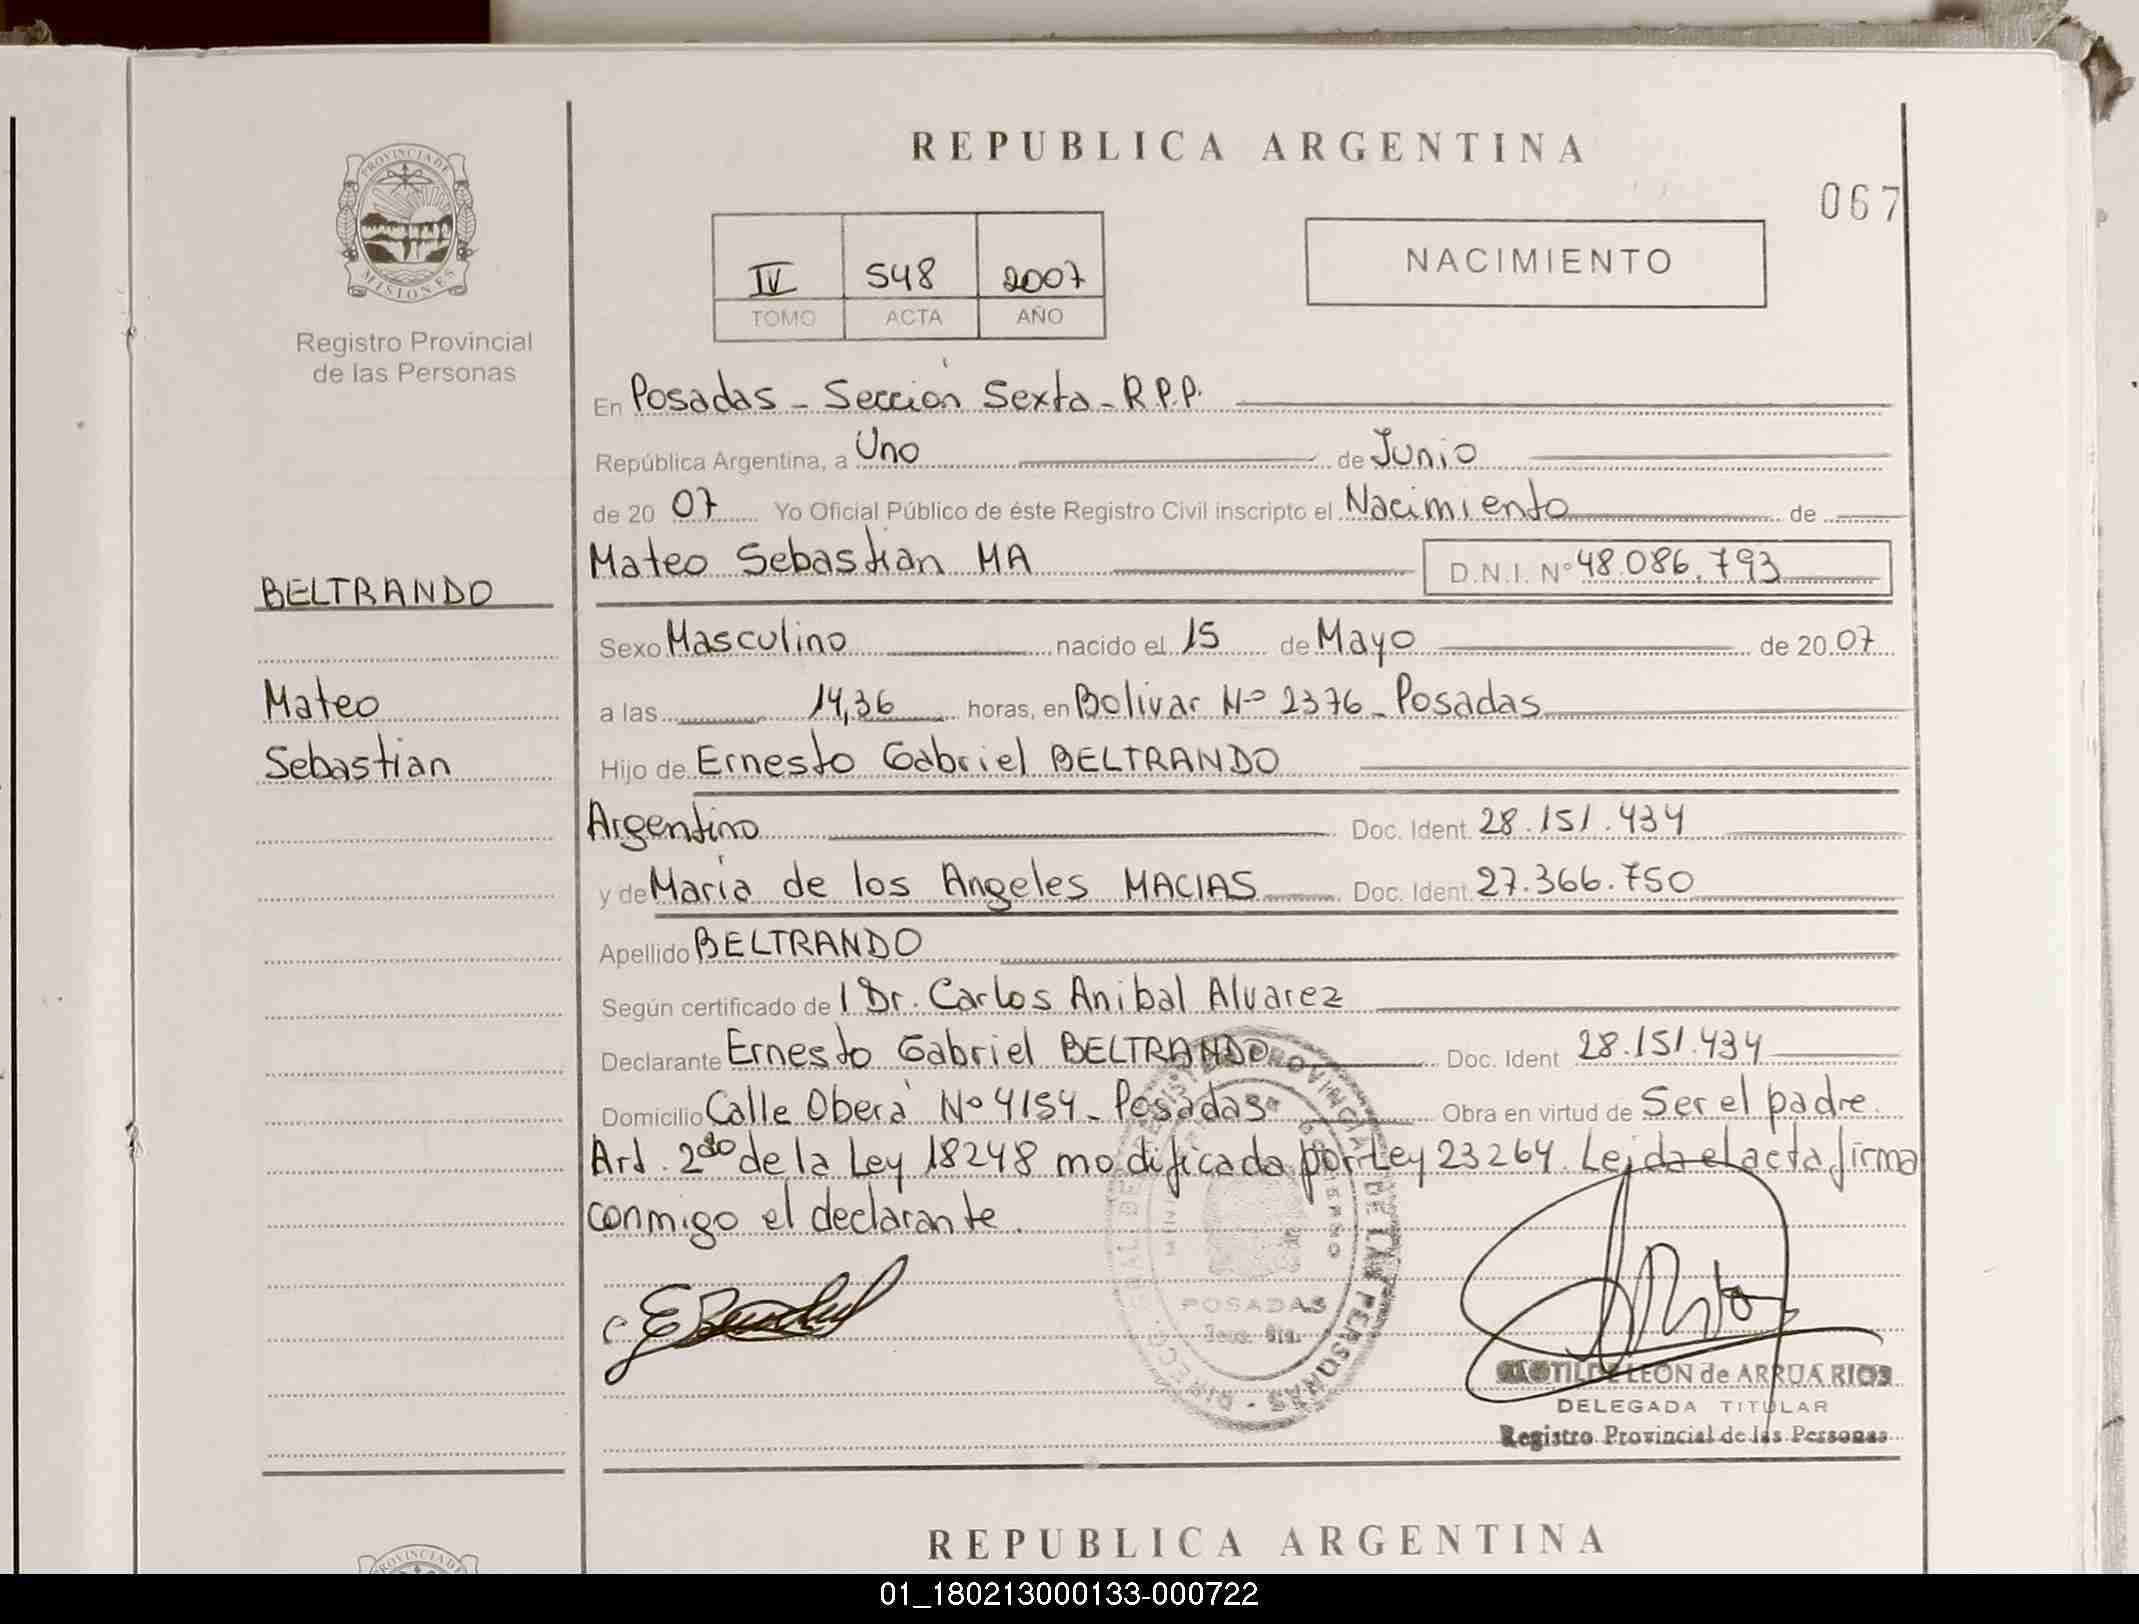 REPUBLICA ARGENTINA
067
PROVINCIA DE MISIONES
Registro Provincial
de las Personas
IV 548 2007
TOMO ACTA AÑO
NACIMIENTO
En Posadas - Sección Sexta - R.P.P.
República Argentina, a Uno de Junio
de 2007 Yo Oficial Público de éste Registro Civil inscripto el Nacimiento de
Mateo Sebastian MA D.N.I. Nº 48.086.793
BELTRANDO
Mateo
Sebastian
Sexo Masculino nacido el 15 de Mayo de 2007
a las 14,36 horas, en Bolivar Nº 2376 - Posadas
Hijo de Ernesto Gabriel BELTRANDO
Argentino Doc. Ident. 28.151.434
y de María de los Angeles MACIAS Doc. Ident. 27.366.750
Apellido BELTRANDO
Según certificado de l Dr. Carlos Anibal Alvarez
Declarante Ernesto Gabriel BELTRANDO Doc. Ident 28.151.434
Domicilio Calle Oberá Nº 4154 - Posadas Obra en virtud de Ser el padre.
Art. 2do de la Ley 18248 modificada por Ley 23264. Leida el acta firma
conmigo el declarante.
POSADAS
CLOTILDE LEON de ARRUA RIOS
DELEGADA TITULAR
Registro Provincial de las Personas
REPUBLICA ARGENTINA
PROVINCIA D
01_180213000133-000722